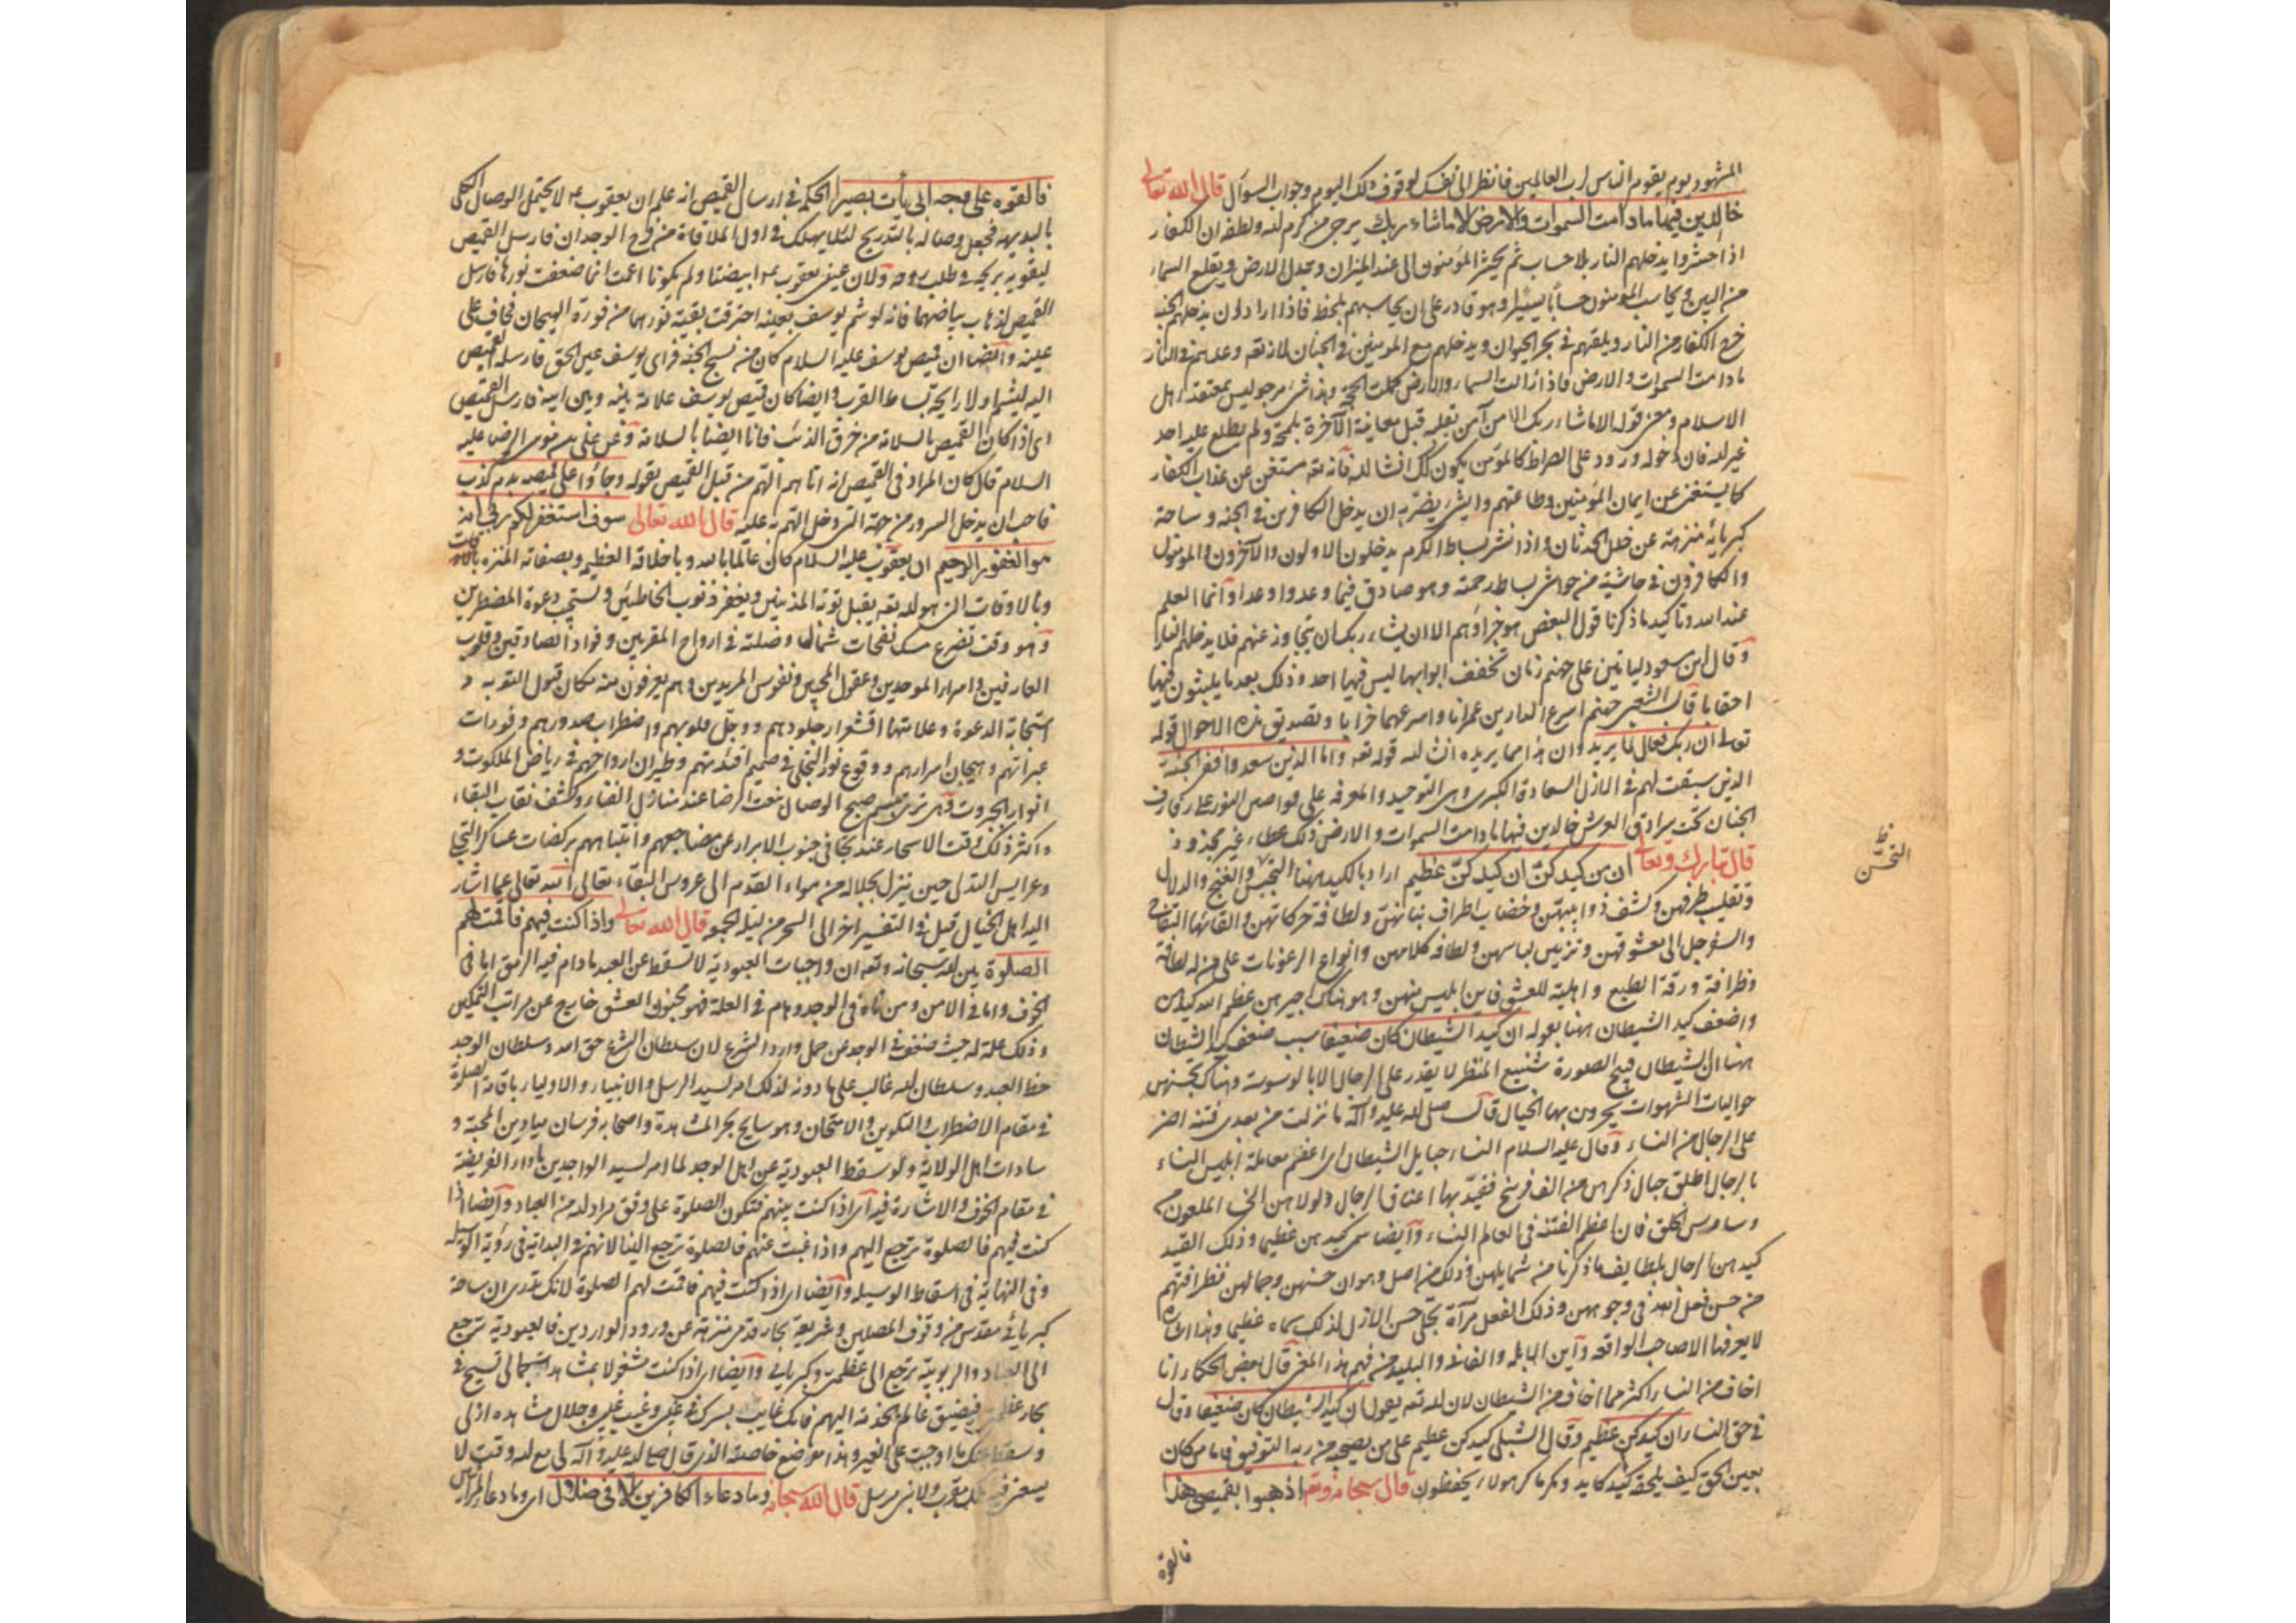 المشهود يوم يقوم الناس لرب العالمين فانظر الى نفسك لوقوف ذلك اليوم وجواب السؤال قال الله تعالى
خالدين فيها ما دامت السموات والارض الا ما شاء ربك يرجى من كرم الله ولطفه ان الكفار
اذا حشروا يدخلهم النار بلا حساب ثم يحشر المؤمنون الى عند الميزان ويبدل الارض ويقلع السماء
من البين ويحاسب المؤمنون حسابا يسيرا وهو قادر على ان يحاسبهم بلحظ فاذا اراد ان يدخلهم الجنة
خرج الكفار من النار ويلقهم في بحر الحيوان ويدخلهم مع المؤمنين في الجنان لانه تعه وعدهم في النار
ما دامت السموات والارض فاذا زالت السماء والارض كملت الحجة وهذا شيء مرجو ليس بمعتقد اهل
الاسلام ومعنى قوله الا ما شاء ربك الا من آمن بقلبه قبل معاينة الآخرة بلمحة ولم يطلع عليه احد
غير الله فان دخوله ورود على الصراط كالمؤمن يكون كذلك انشا الله فانه تعه مستغن عن عذاب الكفار
كما يستغنى عن ايمان المؤمنين وطاعتهم وايش يضر به ان يدخل الكافرين في الجنة وساحة
كبريائه منزهة عن خلل الحدثان واذا نشر بساط الكرم يدخلون الاولون والآخرون والمؤمنون
والكافرون في حاشية من حواشي بساط رحمته وهو صادق فيما وعدوا وعدا وانما العلم
عند الله وتاكيد ما ذكرنا قول البعض هو جزاؤهم الا ان يشاء ربك ان يتجاوز عنهم فلا يدخلهم النار
وقال ابن مسعود لياتين على جهنم زمان تخفف ابوابها ليس فيها احد وذلك بعد ما يلبثون فيها
احقابا قال الشعبي جهنم اسرع الدارين عمرانا واسرعهما خرابا وتصديق هذه الاحوال قوله
تعالى ان ربك فعال لما يريد وان هذا مما يريده انشا الله قوله تعه واما الذين سعدوا ففي الجنة
الذين سبقت لهم في الازل السعادة الكبرى وهي التوحيد والمعرفة على النور على رفارف
الجنان تحت سرادق العرش خالدين فيها ما دامت السموات والارض ذلك عطاء غير مجذوذ
قال تبارك وتعا ان من كيدكن ان كيدكن عظيم اراد بالكيد ههنا التجنس والغنج والدلال
التحسّن ظ
وتقليب طرفهن وكشف ذوايبهن وخضاب اطراف بنانهن ولطافة حركاتهن والقائها التفاح
والسفرجل الى معشوقهن وتزيين لباسهن ولطافة كلامهن وانواع الرعونات على من له لطافة
وظرافة ورقة الطبع واهلية للعشق فاين ابليس منهن وهو هناك اجيرهن عظم الله كيدهن
واضعف كيد الشيطان ههنا بقوله ان كيد الشيطان كان ضعيفا سبب ضعف كيد الشيطان
ههنا ان الشيطان قبيح الصورة شنيع المنظر لا يقدر على الرجال الا بالوسوسة وهناك بحسنهن
الشهوات يجرون بها الخيال قال صلى الله عليه وآله ما نزلت من بعدي فتنة اضر
على الرجال من النساء وقال عليه السلام النساء حبايل الشيطان اى اعظم معاملة ابليس النساء
بالرجال اطلق حبال ذكرهن من الف فرسخ فقيد بها اعناق الرجال ولولاهن الملعون
الخلق فان اعظم الفتنة في العالم النساء وايضا سمى كيدهن عظيما وذلك القيد
كيدهن بالرجال بلطايف ما ذكرنا من شمايلهن وذلك من اصل وهو ان حسنهن وجمالهن وظرافتهم
من حسن فعل الله في وجوههن وذلك الفعل مرآة تجلى حسن الازل لذلك سماه عظيما وهذا اشارة
لا يعرفها الا صاحب الواقعة واين البله والبليد من فهم هذا المعنى قال بعض الحكماء انا
اخاف من النساء اكثر مما اخاف من الشيطان لان الله تعه يقول ان كيد الشيطان كان ضعيفا وقال
في حق النساء ان كيدكن عظيم وقال الشبلي كيدكن عظيم على من يصحبه من ربه التوفيق فاما من كان
بعين الحق كيف يلحقه كيد كايد ومكر ماكر هولاء يحفظون قال سبحانه وتعه اذهبوا بقميصي هذا
فالقوه
فالقوه على وجه ابى يأت بصيرا الحكمة في ارسال القميص انه علم ان يعقوب ع م لا يحتمل الوصال الكلى
بالبديهة فجعل وصاله بالتدريج لئلا يهلك في اول الملاقاة من فرح الوجدان فارسل القميص
ليقويه بريحه ولان عينى يعقوب ع م ابيضتا ولم يكونا اعمت انما ضعفت نورها فارسل
القميص لذهاب بياضهما فانه لو شم يوسف بعينه احترقت بقية نورهما من فورة الهيجان فخاف على
عينه وايضا ان قميص يوسف عليه السلام كان من نسج الجنة فراى يوسف عين الحق فارسله القميص
اليه ليشم اولا رايحة بساط القرب وايضا كان قميص يوسف علامة بينه وبين ابيه فارسل القميص
اى اذا كان القميص بالسلامة من خرق الذئب فانا ايضا بالسلامة وعن على بن موسى الرضا عليه
السلام قال كان المراد في القميص انه اتاهم الهم من قبل القميص بقوله وجاؤا على قميصه بدم كذب
فاحب ان يدخل السرور من جهة التى دخل الهم به عليه قال الله تعالى سوف استغفر لكم ربى انه
هو الغفور الرحيم ان يعقوب عليه السلام كان عالما بالله وباخلاقه العظيم وبصفاته المنزه
وبالاوقات التى هو الله تعه يقبل توبة المذنبين ويغفر ذنوب الخاطئين ويستجيب دعوة المضطرين
وهو وقت تضوع مسك نفحات شمال وصلته في ارواح المقربين وفواد الصادقين وقلوب
العارفين واسرار الموحدين وعقول المحبين ونفوس المريدين وهم يعرفون منه مكان قبول التوبة و
استجابة الدعوة وعلامتها اقشعرار جلودهم ووجل قلوبهم واضطراب صدورهم وفورات
عبراتهم وهيجان اسرارهم ووقوع نور التجلى في صميم افئدتهم وطيران ارواحهم في رياض الملكوت و
انوار الجبروت صبح الوصال بنعت الرضا عند منازل الفناء وكشف نقاب البقاء
واكثر ذلك وقت الاسحار عند تجافى جنوب الابرار عن مضاجعهم وانتباههم بركضات عساكر التجلى
وعرايس التدلى حين ينزل بجلاله من القدم الى عروس البقاء تعالى الله تعالى عما اشار
اليه اهل الخيال قيل في التفسير اخر الى السحر من ليلة الجمعه قال الله تعالى واذا كنت فيهم فاقمت لهم
الصلوة بين الله سبحانه وتعه ان واجبات العبودية لا تسقط عن العبد ما دام فيه الرمق اما في
الخوف واما في الامن ومن تاه في الوجد وهام في الغلبة فهو مجنون العشق خارج عن مراتب التمكين
وذلك علة له حيث ضعف في الوجد عن حمل وارد الشرع لان سلطان الشرع حق الله وسلطان الوجد
حظ العبد وسلطان الله غالب على ما دونه لذلك امر لسيد الرسل والانبياء والاولياء باقامة الصلوة
في مقام الاضطراب والتلوين والامتحان وهو سابح بحر المشاهدة واصحابه فرسان ميادين المحبة و
سادات اهل الولاية ولو سقط العبودية عن اهل الوجد لما امر لسيد الواجدين باداء الفريضة
في مقام الخوف والاشارة فيه اى اذا كنت بينهم فتكون الصلوة على وفق مراد الله من العباد وايضا اذا
كنت فيهم فالصلوة ترجع اليهم واذا غبت عنهم فالصلوة ترجع الينا لانهم في البداية في رؤية الوسيلة
وفى النهاية في اسقاط الوسيله وايضا اى اذا كنت فيهم فاقمت لهم الصلوة لانك تدرى ان ساحة
كبريائى مقدس من وقوف المصلين وشريعة بحار قدمى منزهة عن ورود الواردين فالعبودية ترجع
الى العباد والربوبية ترجع الى عظمتى وكبريائى وايضا اى اذا كنت مشغولا بمشاهدة جمالى تسبح في
بحار عظمتى فيضيق عالم الحدثة اليهم فانك غايب بسرك في غيبى وغيب غيبى وجلال مشاهدة ازلى
وسقط عنك ما اوجبت على الغير وهذا موضع خاصته الذى قال صلى الله عليه وآله لى مع الله وقت لا
يسعنى فيه ملك مقرب ولا نبى مرسل قال الله سبحانه وما دعاء الكافرين الا في ضلال اى وما دعاء